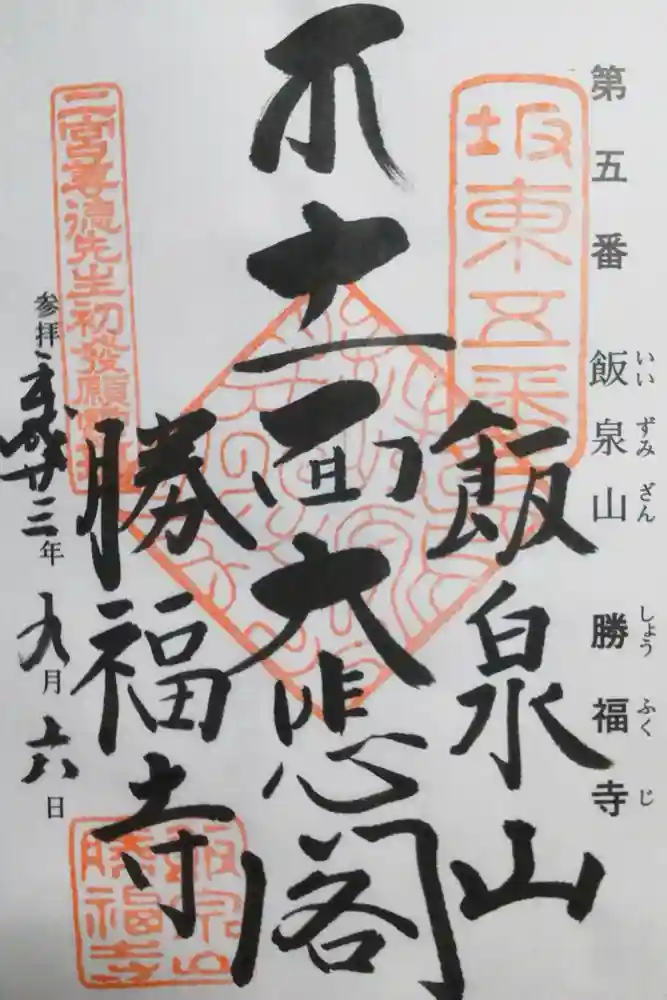 第五番 飯泉山 勝福寺
いい ずみ ざん しょう ふく じ
坂東五番
飯泉山
十一面大悲閣
勝福寺
二宮尊徳先生初發願
参拝 平成廿三年 九月 六日
飯泉山
勝福寺